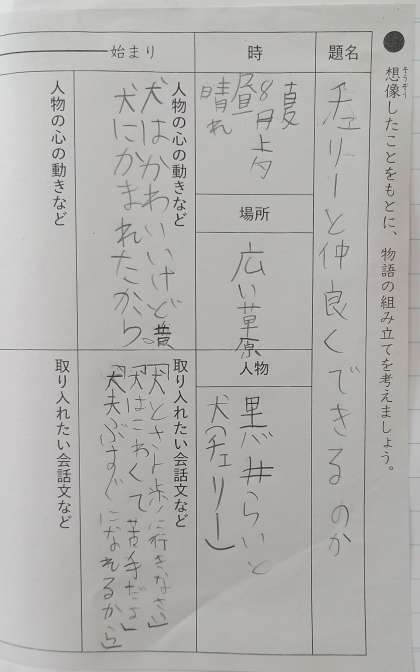 想像したことをもとに、物語の組み立てを考えましょう。
そうぞう
題名
チェリーと仲良くできるのか
時
夏
8月上夕
昼
晴れ
場所
広い草原
人物
黒井らいと
犬(チェリー)
始まり
人物の心の動きなど
犬はかわいいけど昔
犬にかまれたから。
取り入れたい会話文など
「犬とさん歩に行きなさい」
「犬はこわくて苦手だよ」
「大夫ぶすぐになれるから」
人物の心の動きなど
取り入れたい会話文など